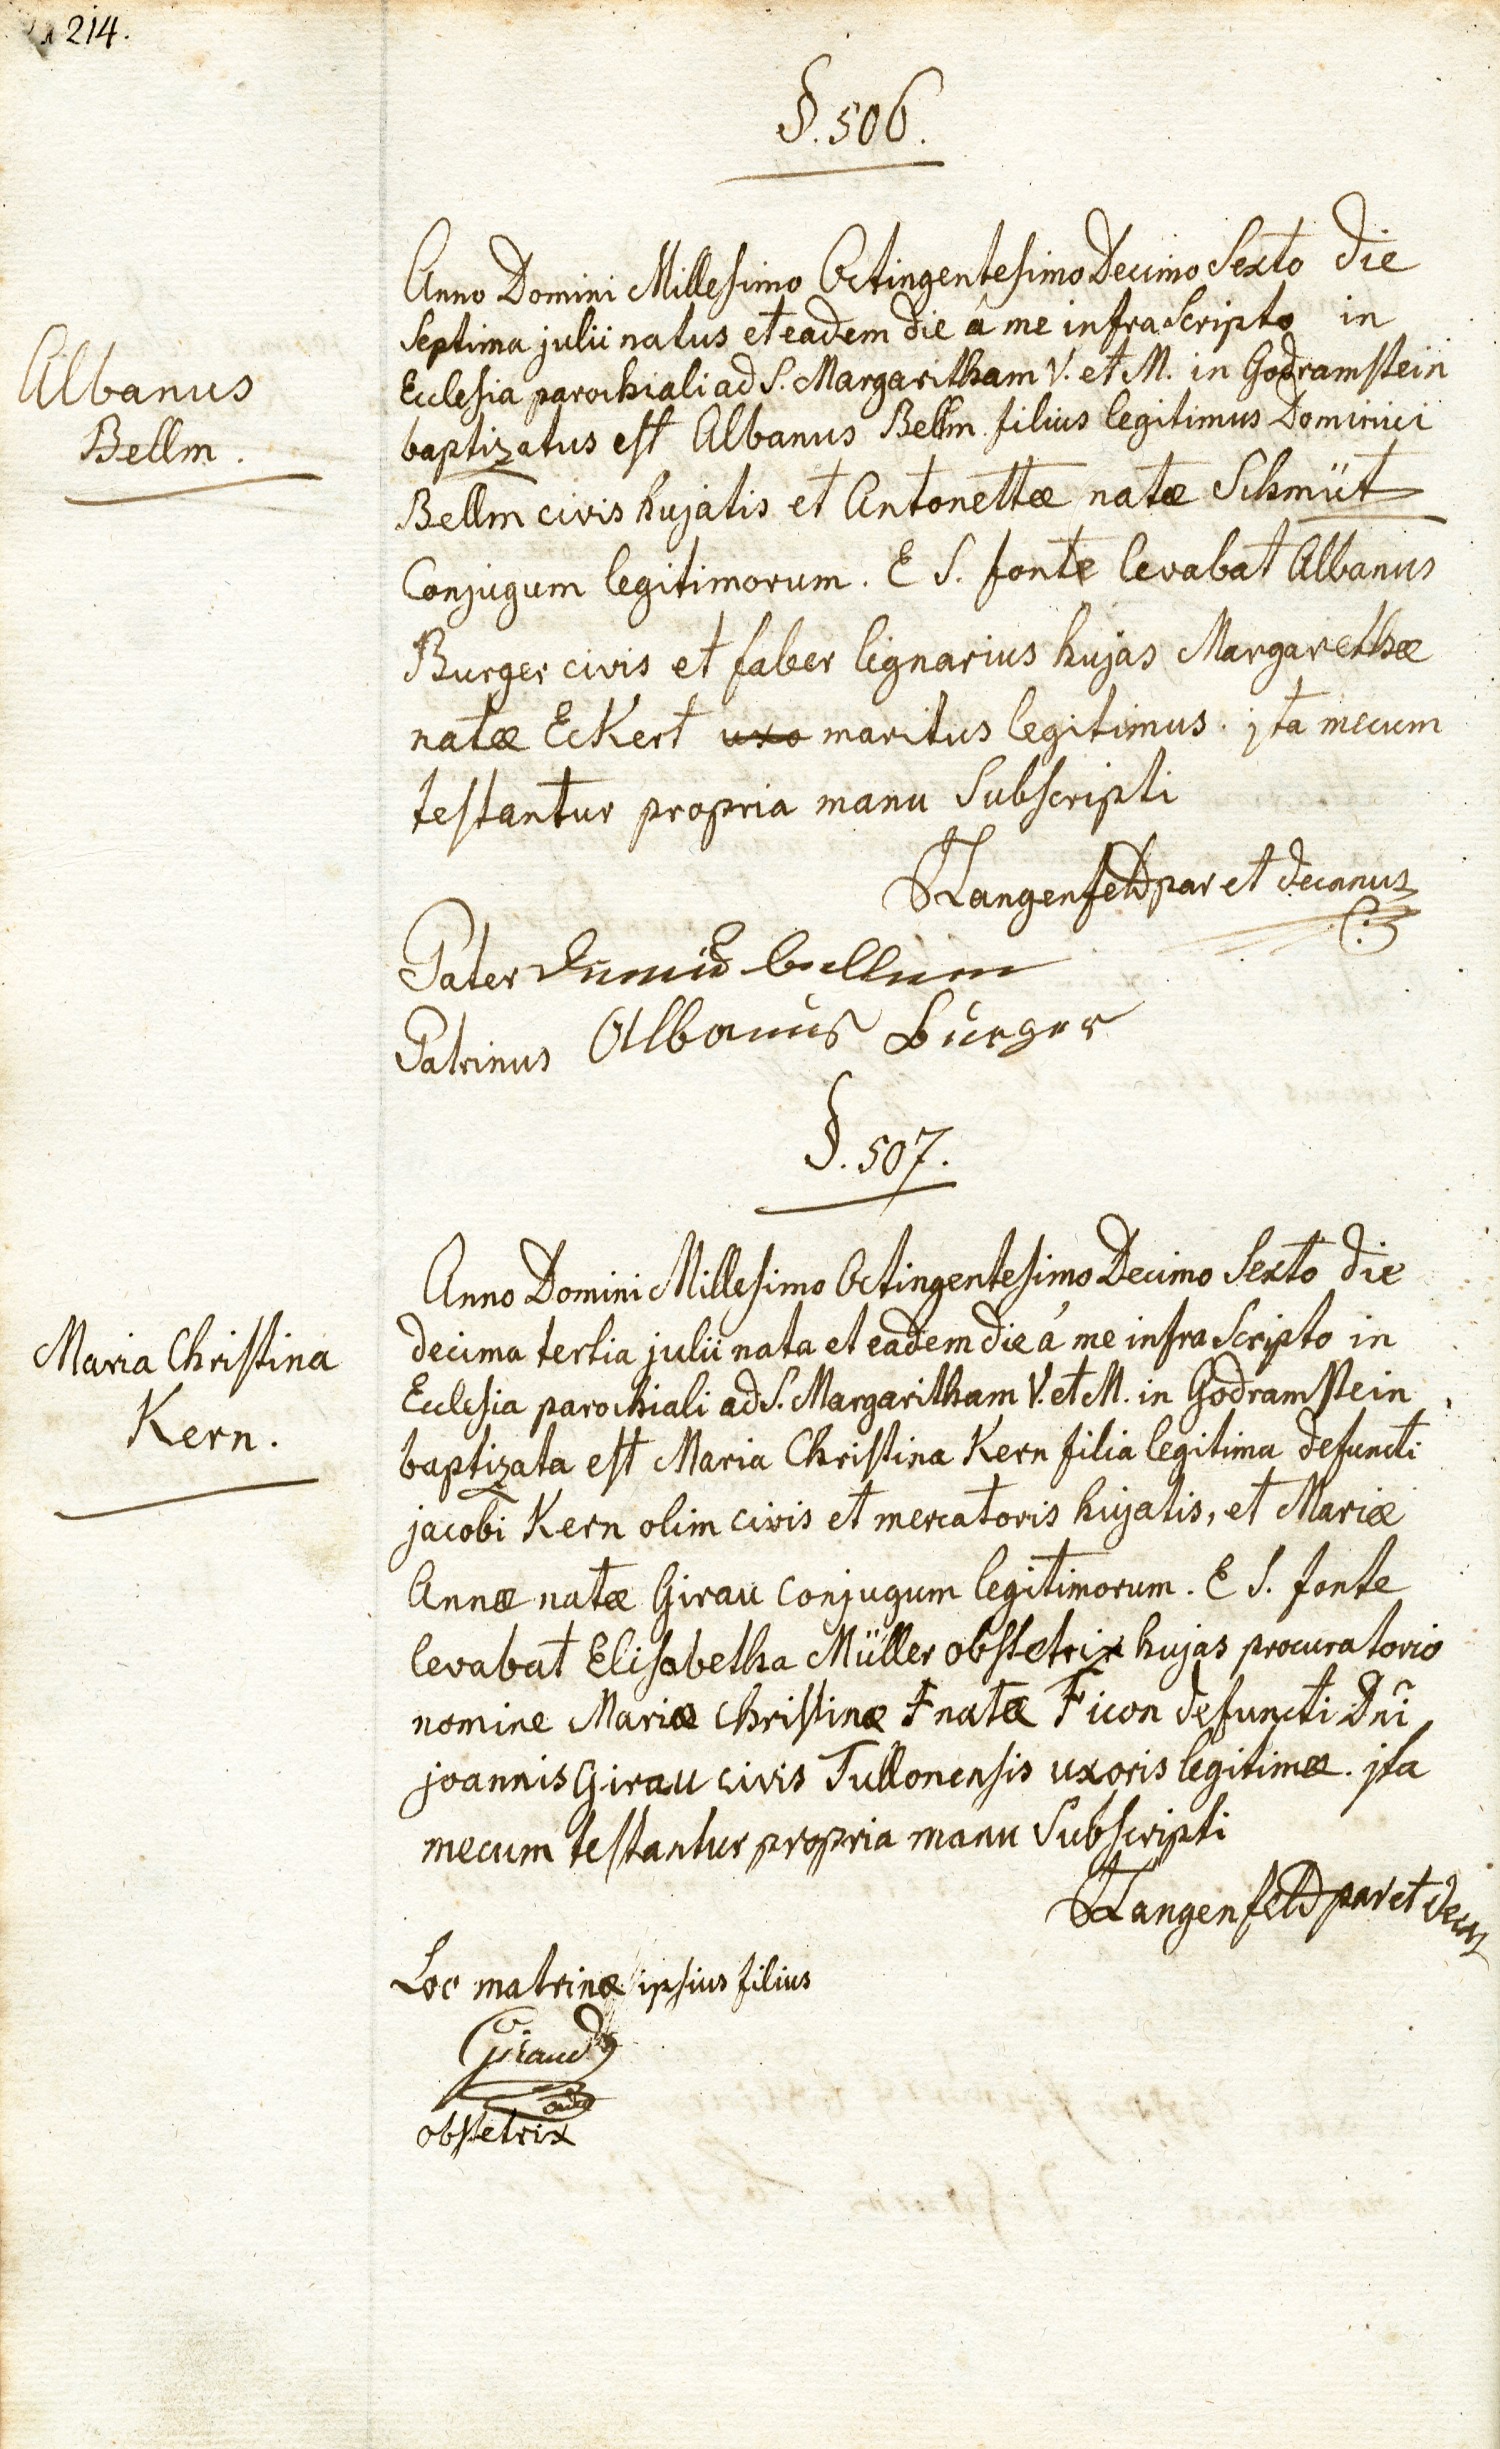 214.
§. 506.
Albanus
Bellm.
Anno Domini Millesimo Octingentesimo Decimo Sexto die
Septima julii natus et eadem die á me infra Scripto in
Ecclesia parochiali ad S. Margaritham V. et M. in Godramstein
baptizatus est Albanus Bellm filius legitimus Dominici
Bellm civis hujatis et Antonettæ natæ Schmüt
Conjugum legitimorum. E S. fonte levabat Albanus
Burger civis et faber lignarius hujas Margarethæ
natæ Eckert uxo maritus legitimus. jta mecum
testantur propria manu Subscripti
Langenfeld par et decanus
Pater
Patrinus Albanus Burger
§. 507.
Maria Christina
Kern.
Anno Domini Millesimo Octingentesimo Decimo Sexto die
decima tertia julii nata et eadem die á me infra Scripto in
Ecclesia parochiali ad S. Margaritham V. et M. in Godramstein
baptizata est Maria Christina Kern filia legitima defuncti
jacobi Kern olim civis et mercatoris hujatis, et Mariæ
Annæ natæ Girau Conjugum legitimorum. E S. fonte
levabat Elisabetha Müller obstetrix hujas procuratorio
nomine Mariæ Christinæ natæ Ficon defuncti Dñi
joannis Girau civis Tullonensis uxoris legitimæ. jta
mecum testantur propria manu Subscripti
Langenfeld par et
Loc matrinæ ipsius filius
Giraud
obstetrix